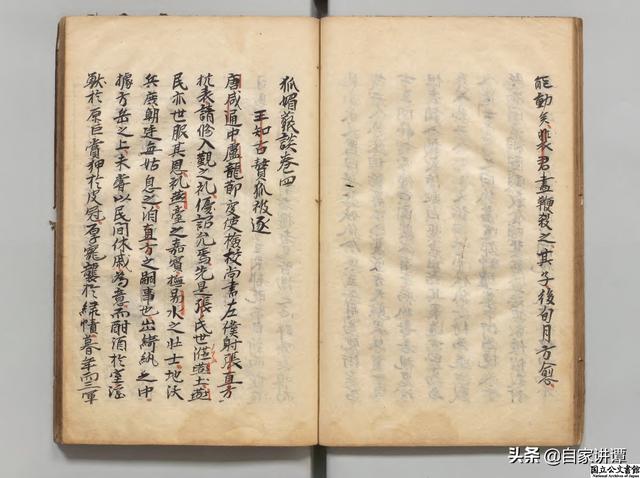 能動矣裴君盡鞭殺之其子後旬月方愈
狐媚藂談卷四
王知古贅狐被逐
唐咸通中盧龍節度使檢校尚書左僕射張直方
抗表請修入覲之礼優詔允焉先是張氏世莅燕土燕
民亦世服其恩礼燕臺之嘉賓撫易水之壮士地沃
兵庶朝廷每姑息之洎直方之嗣事也出綺紈之中
據方岳之上未嘗以民間休戚為意而酣酒於室淫
獸於原巨賞狎於皮冠厚寵襲於綠幘暮年而三軍
头条 @自家讲谭
国立公文書館
National Archives of Japan